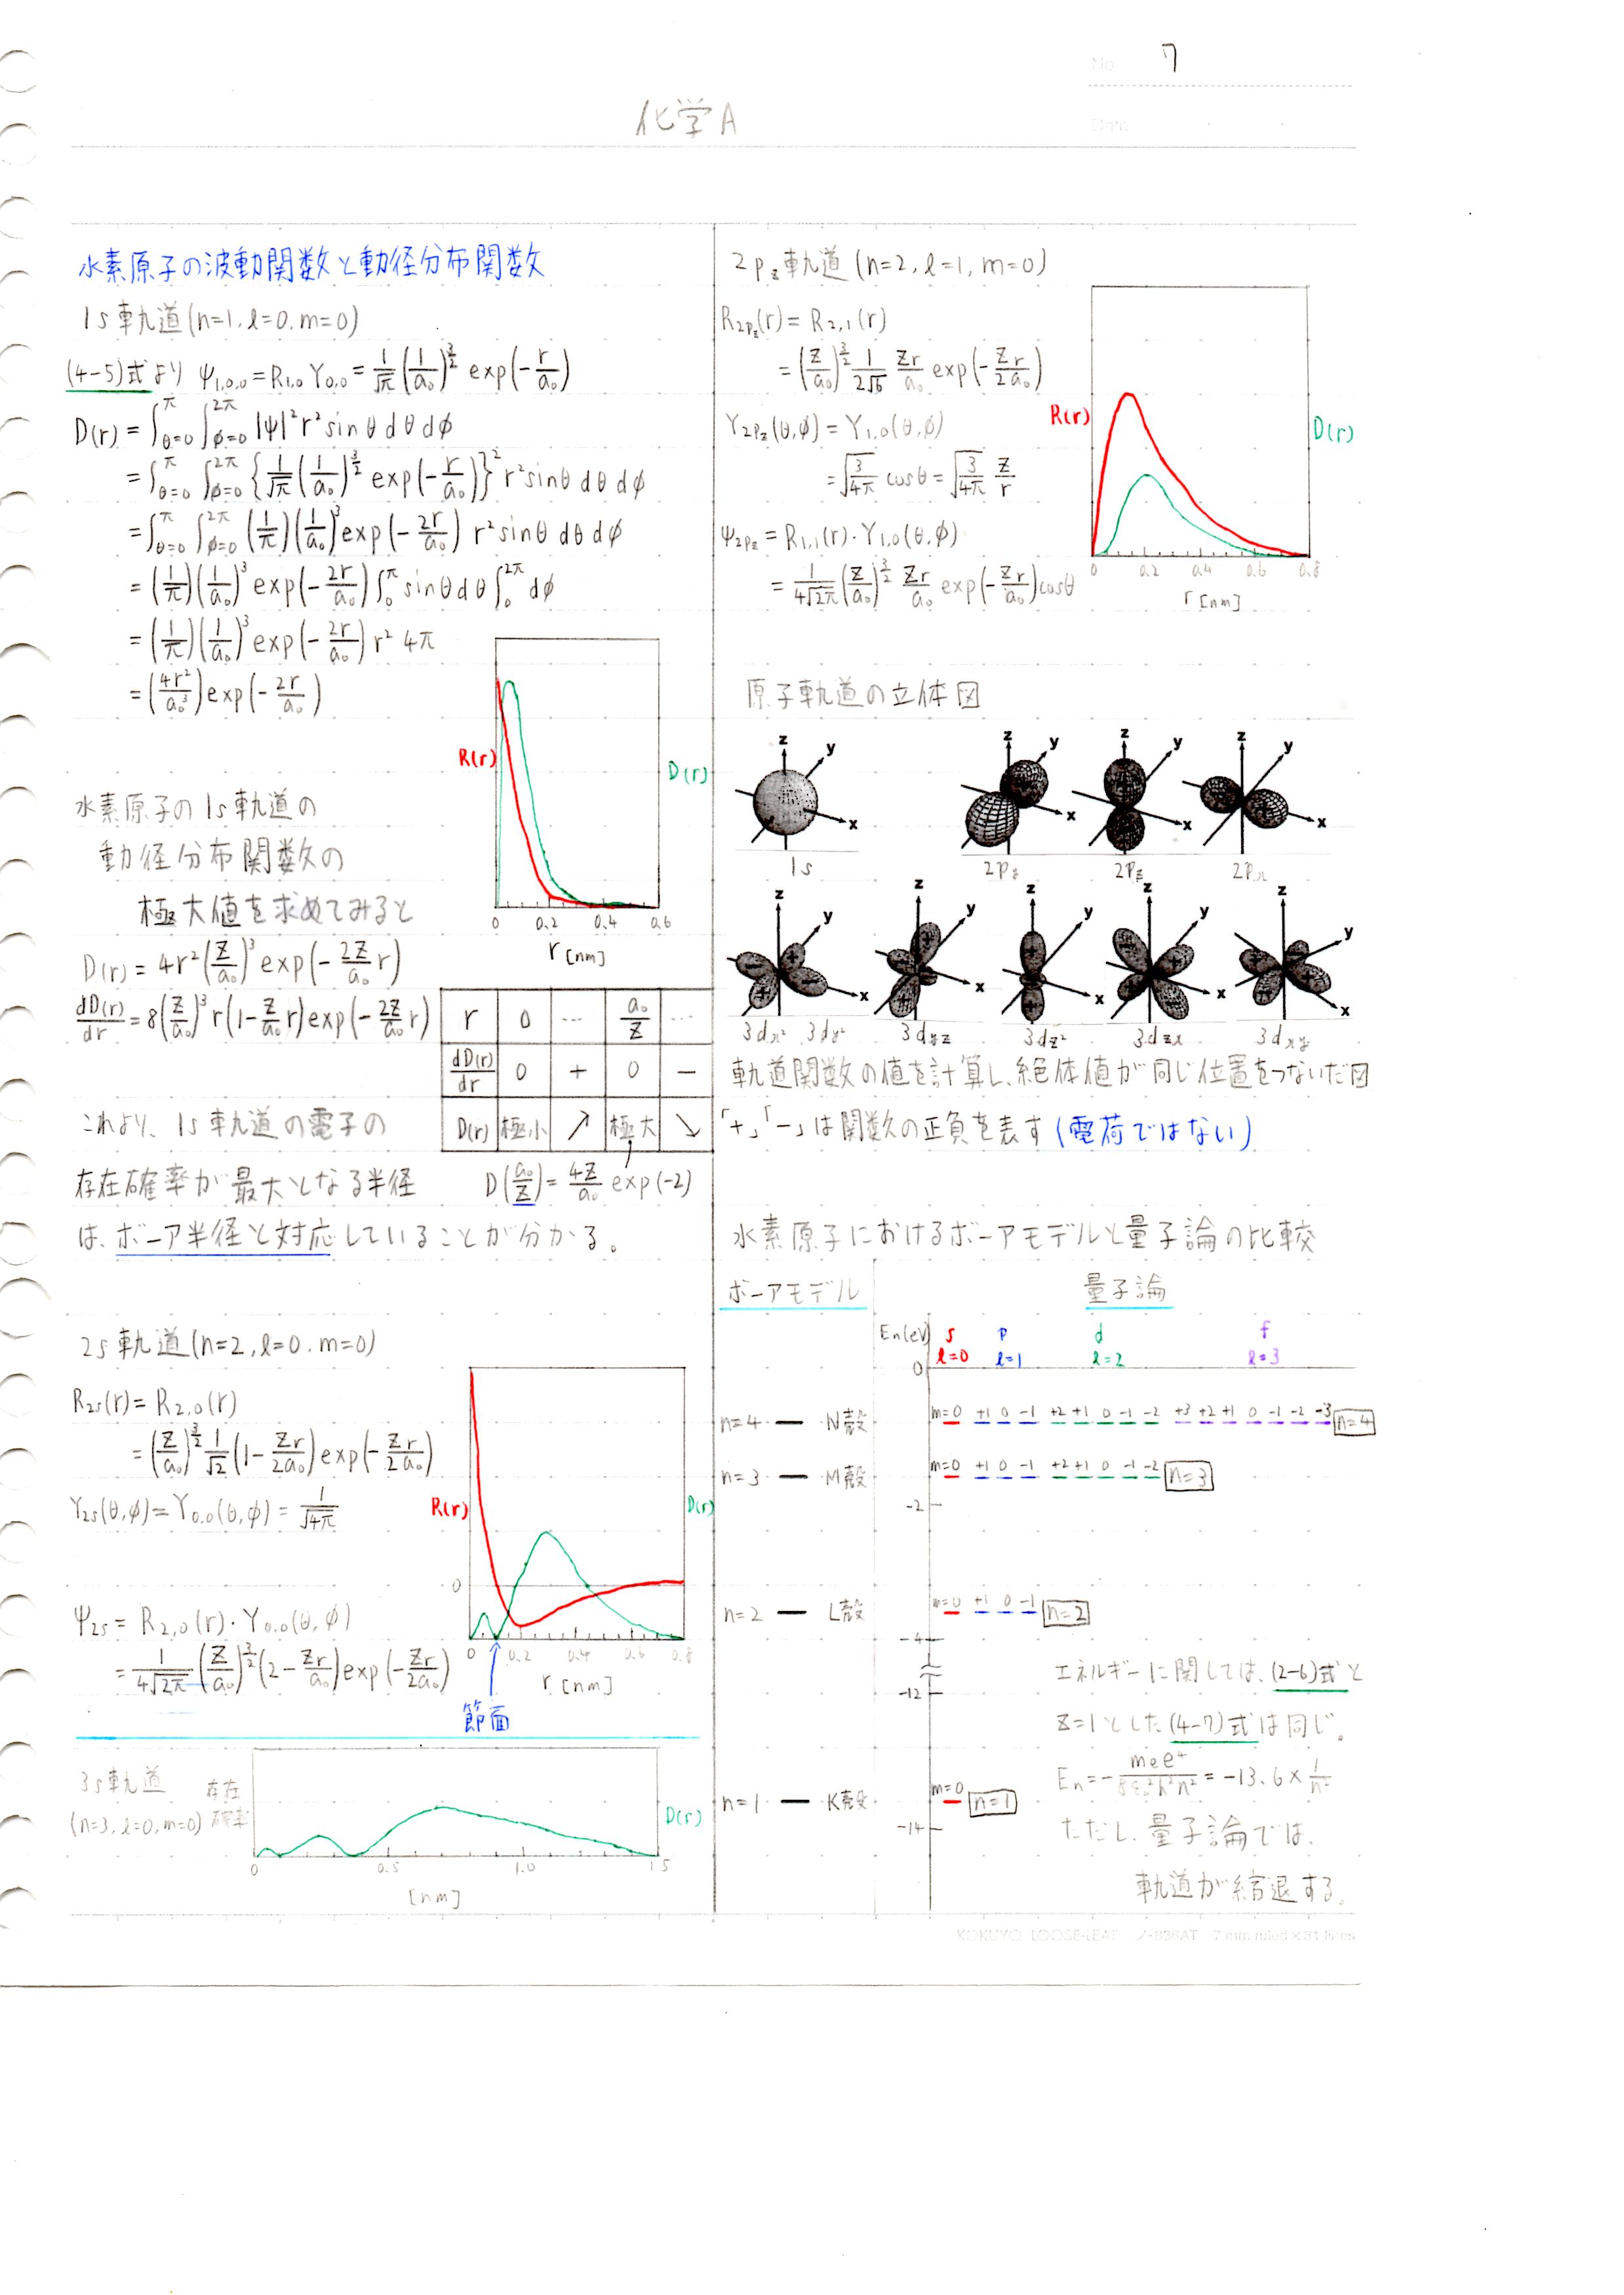 No 7
Date
化学A
水素原子の波動関数と動径分布関数
1s軌道(n=1, l=0, m=0)
(4-5)式より ψ1,0,0 = R1,0 Y0,0 = 1/√π (1/a₀)^(3/2) exp(-r/a₀)
D(r) = ∫_{θ=0}^{π} ∫_{φ=0}^{2π} |ψ|² r² sinθ dθ dφ
= ∫_{θ=0}^{π} ∫_{φ=0}^{2π} {1/√π (1/a₀)^(3/2) exp(-r/a₀)}² r² sinθ dθ dφ
= ∫_{θ=0}^{π} ∫_{φ=0}^{2π} (1/π)(1/a₀)³ exp(-2r/a₀) r² sinθ dθ dφ
= (1/π)(1/a₀)³ exp(-2r/a₀) ∫_0^π sinθ dθ ∫_0^{2π} dφ
= (1/π)(1/a₀)³ exp(-2r/a₀) r² 4π
= (4r²/a₀³) exp(-2r/a₀)
R(r)
D(r)
0 0.2 0.4 0.6
r [nm]
水素原子の1s軌道の
動径分布関数の
極大値を求めてみると
D(r) = 4r² (Z/a₀)³ exp(-2Z/a₀ r)
dD(r)/dr = 8(Z/a₀)³ r(1-Z/a₀ r) exp(-2Z/a₀ r)
r 0 … a₀/Z …
dD(r)/dr 0 + 0 -
D(r) 極小 ↗ 極大 ↘
D(a₀/Z) = 4Z/a₀ exp(-2)
これより、1s軌道の電子の
存在確率が最大となる半径
は、ボーア半径と対応していることが分かる。
2s軌道(n=2, l=0, m=0)
R2s(r) = R2,0(r)
= (Z/a₀)^(3/2) 1/√2 (1-Zr/2a₀) exp(-Zr/2a₀)
Y2s(θ,φ) = Y0,0(θ,φ) = 1/√4π
ψ2s = R2,0(r)・Y0,0(θ,φ)
= 1/4√2π (Z/a₀)^(3/2) (2-Zr/a₀) exp(-Zr/2a₀)
R(r)
D(r)
0
0 0.2 0.4 0.6 0.8
r [nm]
節面
3s軌道
(n=3, l=0, m=0)
存在
確率
D(r)
0 0.5 1.0 1.5
[nm]
2pz軌道(n=2, l=1, m=0)
R2pz(r) = R2,1(r)
= (Z/a₀)^(3/2) 1/2√6 Zr/a₀ exp(-Zr/2a₀)
Y2pz(θ,φ) = Y1,0(θ,φ)
= √(3/4π) cosθ = √(3/4π) z/r
ψ2pz = R1,1(r)・Y1,0(θ,φ)
= 1/4√2π (Z/a₀)^(3/2) Zr/a₀ exp(-Zr/a₀) cosθ
R(r)
D(r)
0 0.2 0.4 0.6 0.8
r [nm]
原子軌道の立体図
z y x
1s
z y x
2py
z y x
2pz
z y x
2px
z y x
3dx² 3dy²
z y x
3dyz
z y x
3dz²
z y x
3dzx
z y x
3dxy
軌道関数の値を計算し、絶体値が同じ位置をつないだ図
「+」「-」は関数の正負を表す(電荷ではない)
水素原子におけるボーアモデルと量子論の比較
ボーアモデル
量子論
En(eV) s p d f
l=0 l=1 l=2 l=3
0
n=4 N殻 m=0 +1 0 -1 +2 +1 0 -1 -2 +3 +2 +1 0 -1 -2 -3 n=4
n=3 M殻 m=0 +1 0 -1 +2 +1 0 -1 -2 n=3
-2
n=2 L殻 m=0 +1 0 -1 n=2
-4
-12
n=1 K殻 m=0 n=1
-14
エネルギーに関しては、(2-6)式と
Z=1とした(4-7)式は同じ。
En = - mee⁴/8ε₀²h²n² = -13.6 × 1/n²
ただし、量子論では、
軌道が縮退する。
KOKUYO LOOSE-LEAF ノ-836AT 7 mm ruled×31 lines